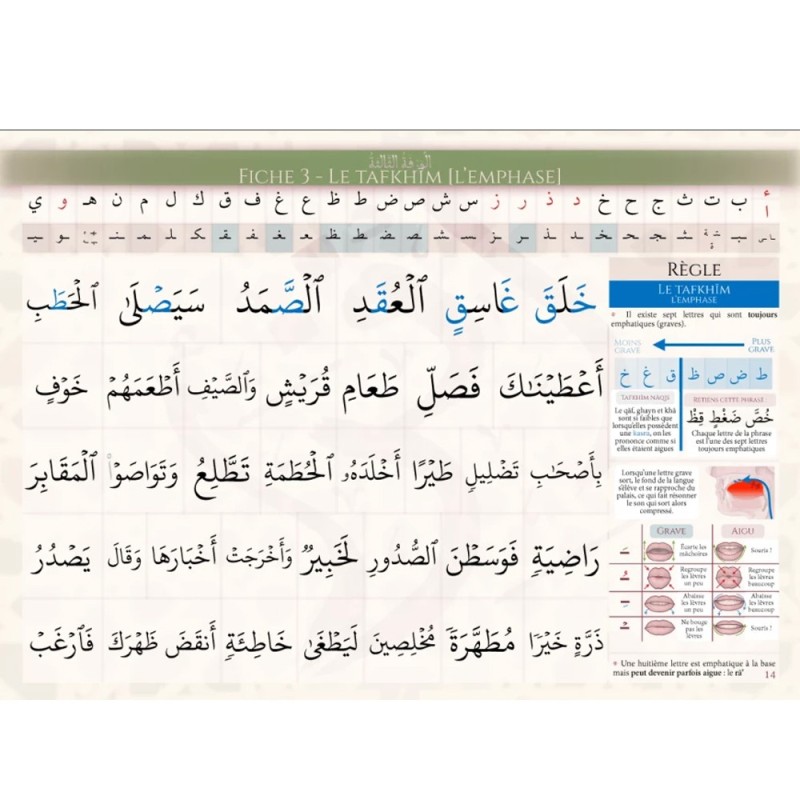 الورقة الثالثة
FICHE 3 - LE TAFKHÎM [L'EMPHASE]
أ ا ب ت ث ج ح خ د ذ ر ز س ش ص ض ط ظ ع غ ف ق ك ل م ن هـ و ي
خَلَقَ غَاسِقٍ ٱلْعُقَدِ ٱلصَّمَدُ سَيَصْلَىٰ ٱلْحَطَبِ
أَعْطَيْنَـٰكَ فَصَلِّ طَعَامِ قُرَيْشٍ وَٱلصَّيْفِ أَطْعَمَهُمْ خَوْفٍ
بِأَصْحَـٰبِ تَضْلِيلٍ طَيْرًا أَخْلَدَهُۥ ٱلْحُطَمَةِ تَطَّلِعُ وَتَوَاصَوْا۟ ٱلْمَقَابِرَ
رَاضِيَةٍ فَوَسَطْنَ ٱلصُّدُورِ لَخَبِيرٌ وَأَخْرَجَتْ أَخْبَارَهَا وَقَالَ يَصْدُرُ
ذَرَّةٍ خَيْرًا مُطَهَّرَةً مُخْلِصِينَ لَيَطْغَىٰ خَاطِئَةٍ أَنقَضَ ظَهْرَكَ فَٱرْغَبْ
RÈGLE
LE TAFKHÎM
L'EMPHASE
* Il existe sept lettres qui sont toujours
emphatiques (graves).
MOINS GRAVE
PLUS GRAVE
ط ض ص ظ ق غ خ
TAFKHÎM NÂQIS
Le qâf, ghayn et khâ
sont si faibles que
lorsqu'elles possèdent
une kasra, on les
prononce comme si
elles étaient aigues
RETIENS CETTE PHRASE
خُصَّ ضَغْطٍ قِظْ
Chaque lettre de la phrase
est l'une des sept lettres
toujours emphatiques
Lorsqu'une lettre grave
sort, le fond de la langue
s'élève et se rapproche du
palais, ce qui fait résonner
le son qui sort alors
compressé.
GRAVE AIGU
Écarte les mâchoires Souris !
Regroupe les lèvres un peu Regroupe les lèvres beaucoup
Abaisse les lèvres un peu Abaisse les lèvres beaucoup
Ne bouge pas les lèvres Souris !
* Une huitième lettre est emphatique à la base
mais peut devenir parfois aigue : le râ'
14